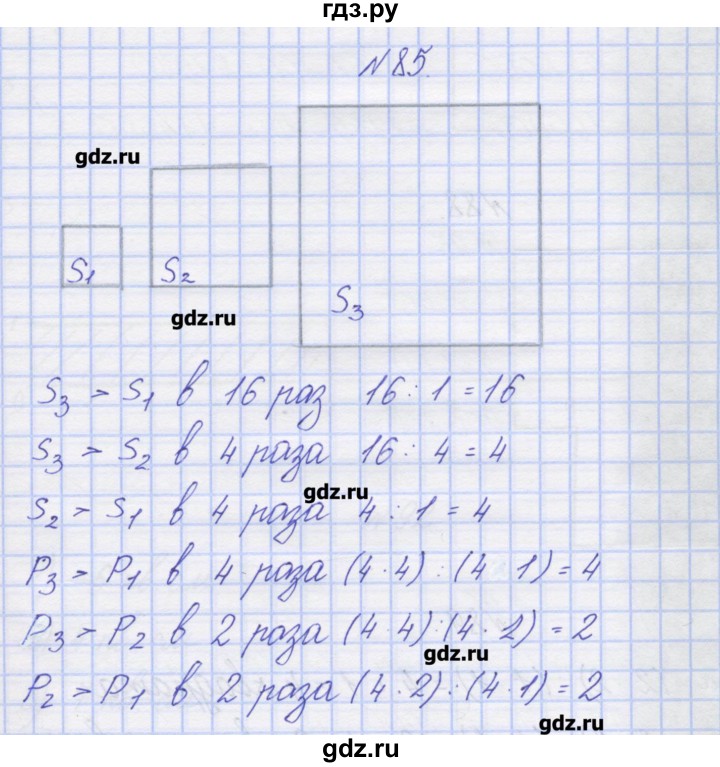 гдз.ру
№85.
gdz.ru
S1
S2
S3
gdz.ru
S3 > S1 в 16 раз 16 : 1 = 16
S3 > S2 в 4 раза 16 : 4 = 4
gdz.ru
S2 > S1 в 4 раза 4 : 1 = 4
P3 > P1 в 4 раза (4 · 4) : (4 · 1) = 4
P3 > P2 в 2 раза (4 · 4) : (4 · 2) = 2
gdz.ru
P2 > P1 в 2 раза (4 · 2) : (4 · 1) = 2
gdz.ru
gdz.ru